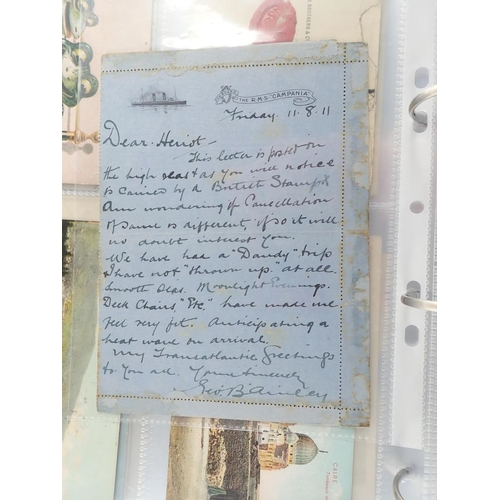 THE R.M.S. "CAMPANIA"
Friday. 11.8.11
Dear Heriot-
This letter is posted on
the high seas & as you will notice
is carried by a British Stamp &
am wondering if Cancellation
of same is different, if so it will
no doubt interest you.
We have had a "Dandy" trip
& have not "thrown up" at all
Smooth Seas. Moonlight Evenings.
Deck Chairs, "Etc." have made me
feel very fit. Anticipating a
heat wave on arrival.
My Transatlantic Greetings
to you all. Yours Sincerely
Geo. B. Ainley
BROTHERS & C
CAIRE